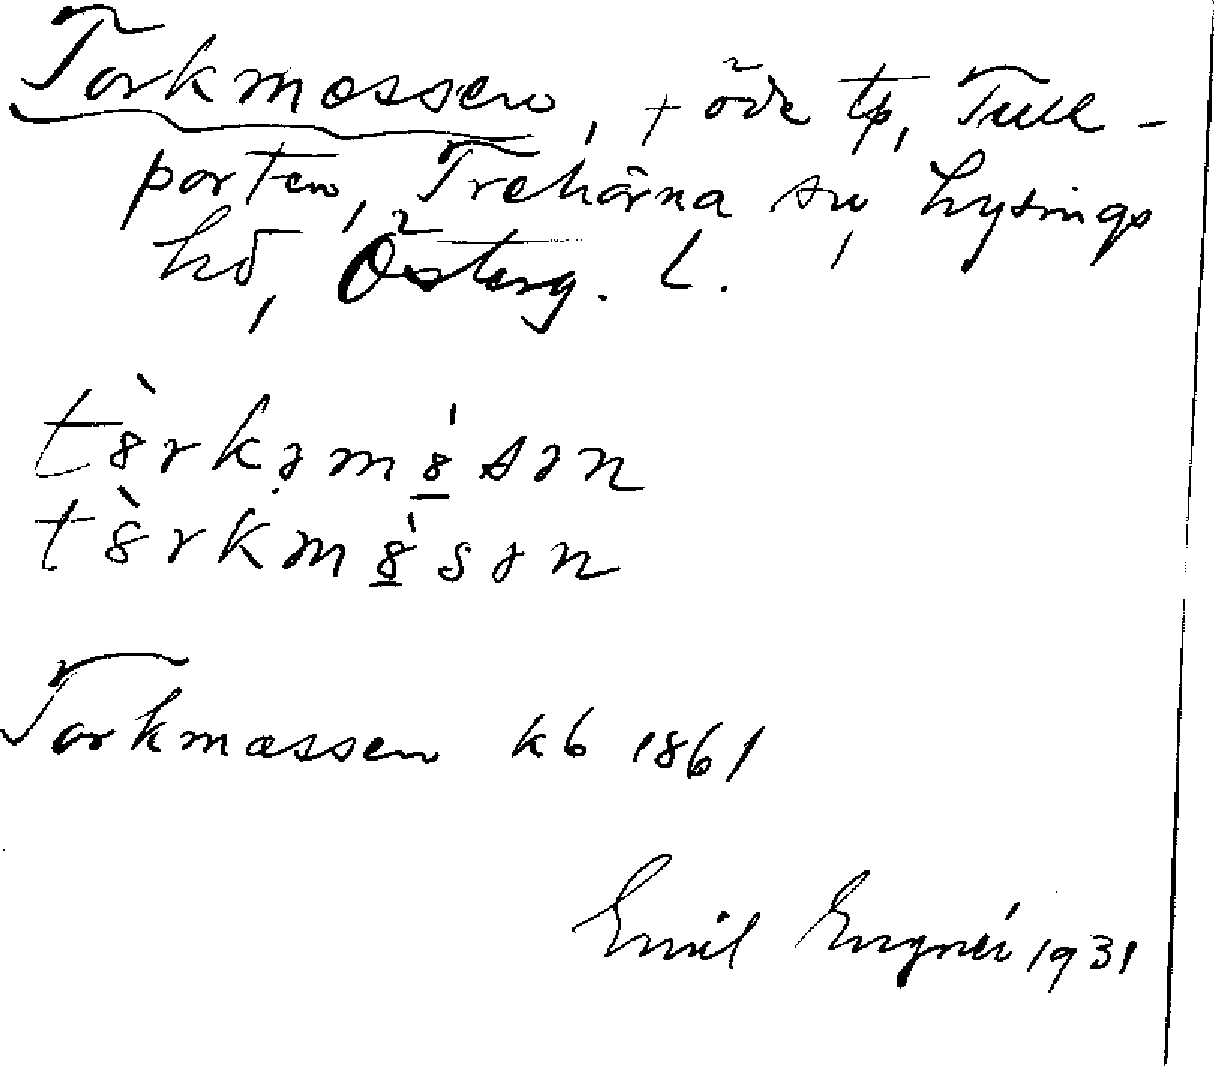 Torkmossen, + öde tp, Tull-
porten, Trehörna sn, Lysings
hd, Österg. L.
tȣ̀rkəmȣ̲́sən
tȣ̀rkmȣ̲́sən
Torkmossen kb 1861
Emil Engnér 1931